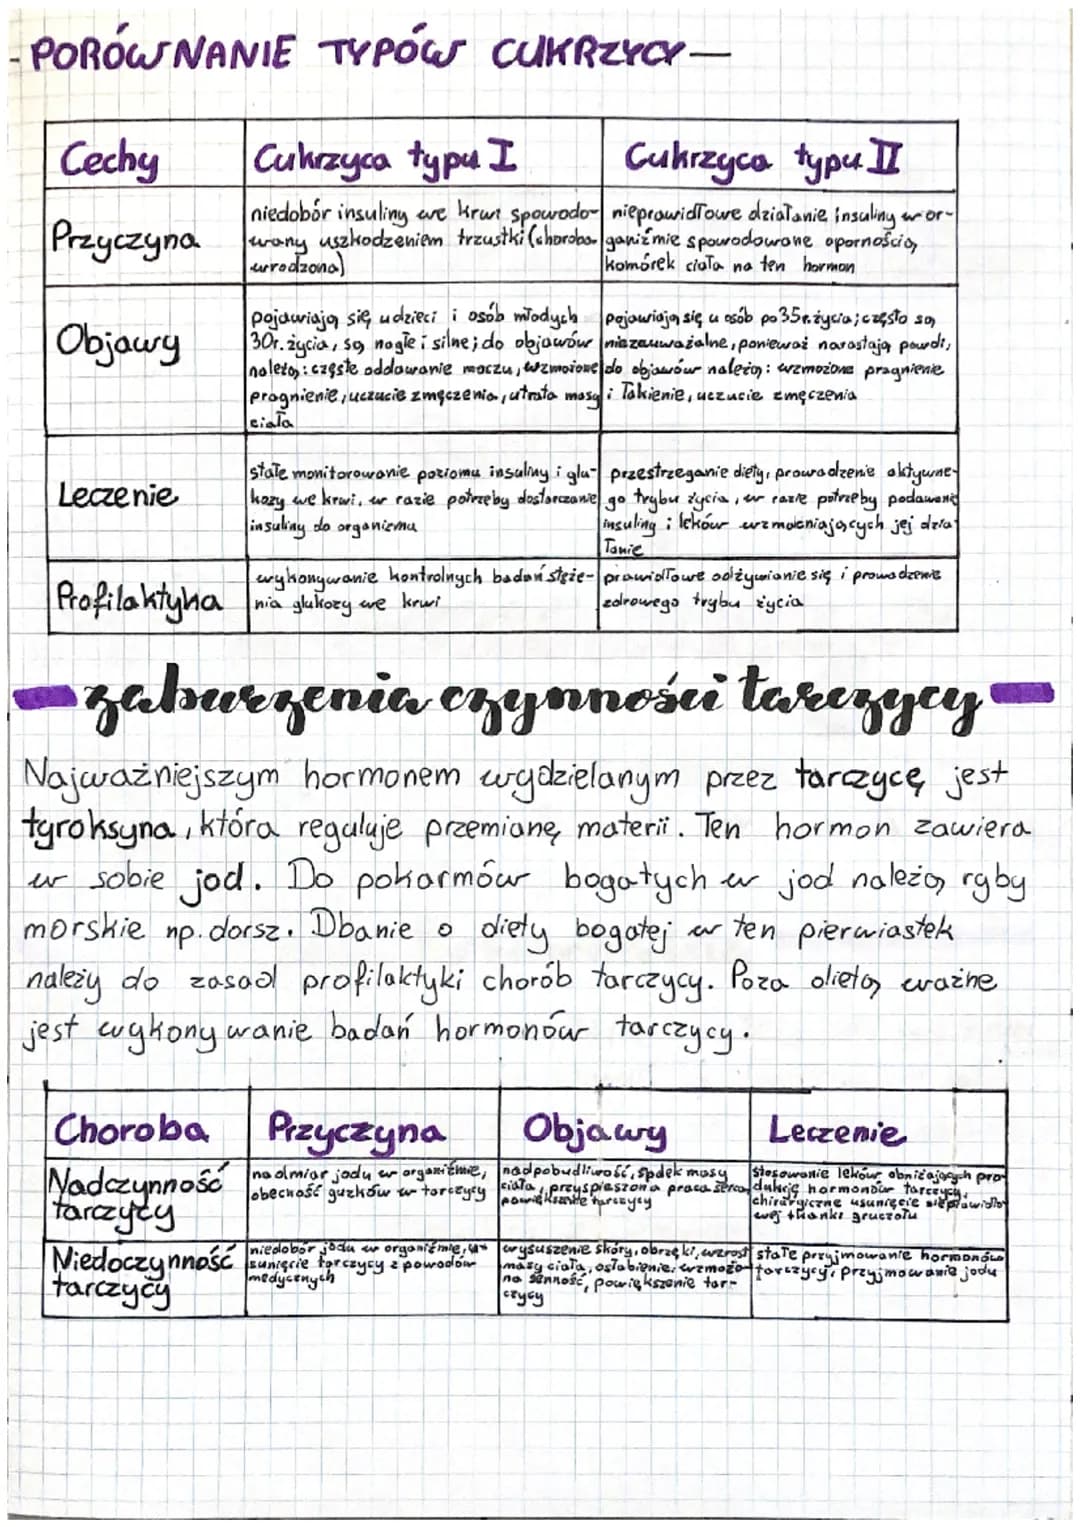 - PORÓWNANIE TYPÓW CUKRZYCY —
Cechy
Cukrzyca typu I
Cukrzyca typu II
Przyczyna
niedobór insuliny we krwi spowodo-
wany uszkodzeniem trzustki (choroba
wrodzona)
nieprawidłowe działanie insuliny w or-
ganiźmie spowodowane opornością
komórek ciała na ten hormon
Objawy
pojawiają się u dzieci i osób młodych
30r. życia, są nagłe i silne; do objawów
należą: częste oddawanie moczu, wzmożone
pragnienie, uczucie zmęczenia, utrata masy
ciała
pojawiają się u osób po 35r. życia; często są
niezauważalne, ponieważ narastają powoli,
do objawów należą: wzmożone pragnienie
i łaknienie, uczucie zmęczenia
Leczenie
stałe monitorowanie poziomu insuliny i glu-
kozy we krwi, w razie potrzeby dostarczanie
insuliny do organizmu
przestrzeganie diety, prowadzenie aktywne-
go trybu życia, w razie potrzeby podawanie
insuliny i leków wzmacniających jej dzia-
łanie
Profilaktyka
wykonywanie kontrolnych badań stęże-
nia glukozy we krwi
prawidłowe odżywianie się i prowadzenie
zdrowego trybu życia
zaburzenia czynności tarczycy
Najważniejszym hormonem wydzielanym przez tarczycę jest
tyroksyna, która reguluje przemianę materii. Ten hormon zawiera
w sobie jod. Do pokarmów bogatych w jod należą ryby
morskie np. dorsz. Dbanie o diety bogatej w ten pierwiastek
należy do zasad profilaktyki chorób tarczycy. Poza dietą ważne
jest wykonywanie badań hormonów tarczycy.
Choroba
Przyczyna
Objawy
Leczenie
Nadczynność
tarczycy
nadmiar jodu w organiźmie,
obecność guzków w tarczycy
nadpobudliwość, spdek masy
ciała, przyspieszona praca serca,
powiększenie tarczycy
stosowanie leków obniżających pro-
dukcję hormonów tarczycy,
chirurgiczne usunięcie nieprawidło-
wej tkanki gruczołu
Niedoczynność
tarczycy
niedobór jodu w organiźmie, u-
sunięcie tarczycy z powodów
medycznych
wysuszenie skóry, obrzęki, wzrost
masy ciała, osłabienie, wzmożo-
na senność, powiększenie tar-
czycy
stałe przyjmowanie hormonów
tarczycy, przyjmowanie jodu